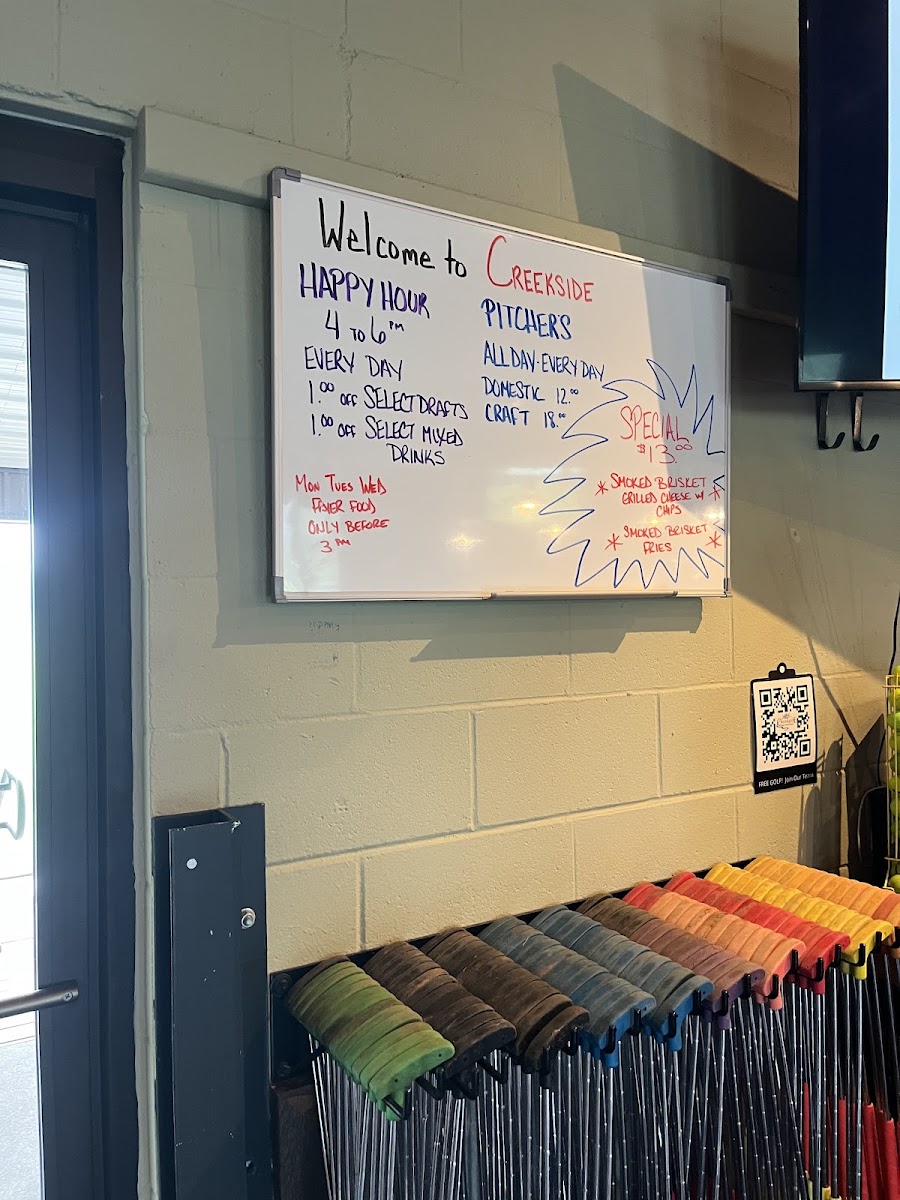 Welcome to CREEKSIDE
HAPPY HOUR
4 TO 6 PM
EVERY DAY
1.00 OFF SELECT DRAFTS
1.00 OFF SELECT MIXED
DRINKS
MON TUES WED
FRYER FOOD
ONLY BEFORE
3 PM
PITCHERS
ALL DAY-EVERY DAY
DOMESTIC 12.00
CRAFT 18.00
SPECIAL
$13.00
* SMOKED BRISKET
GRILLED CHEESE W/ *
CHIPS
* SMOKED BRISKET *
FRIES
FREE GOLF! Join Our Team